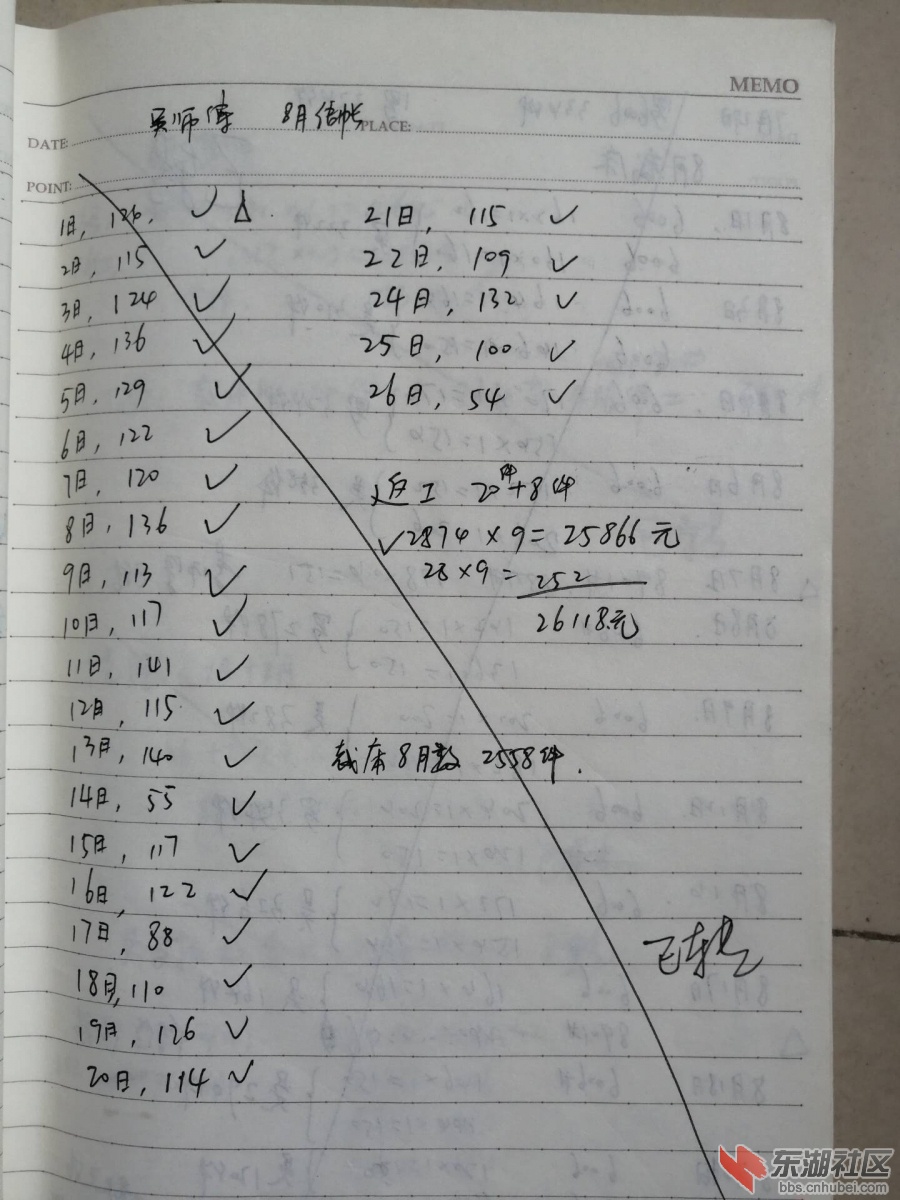 MEMO
吴师傅 8月结帐
PLACE:
DATE:
POINT:
1日, 126. ✓ △.
2日, 115 ✓
3日, 124 ✓
4日, 136 ✓
5日, 129 ✓
6日, 122 ✓
7日, 120 ✓
8日, 136 ✓
9日, 113 ✓
10日, 117 ✓
11日, 141 ✓
12日, 115 ✓
13日, 140 ✓
14日, 55 ✓
15日, 117 ✓
16日, 122 ✓
17日, 88 ✓
18日, 110 ✓
19日, 126 ✓
20日, 114 ✓
21日, 115 ✓
22日, 109 ✓
24日, 132 ✓
25日, 100 ✓
26日, 54 ✓
返工 20件+8件
✓2874×9=25866元
28×9=252
26118元
裁床8月数 2558件.
东湖社区
bbs.cnhubei.com